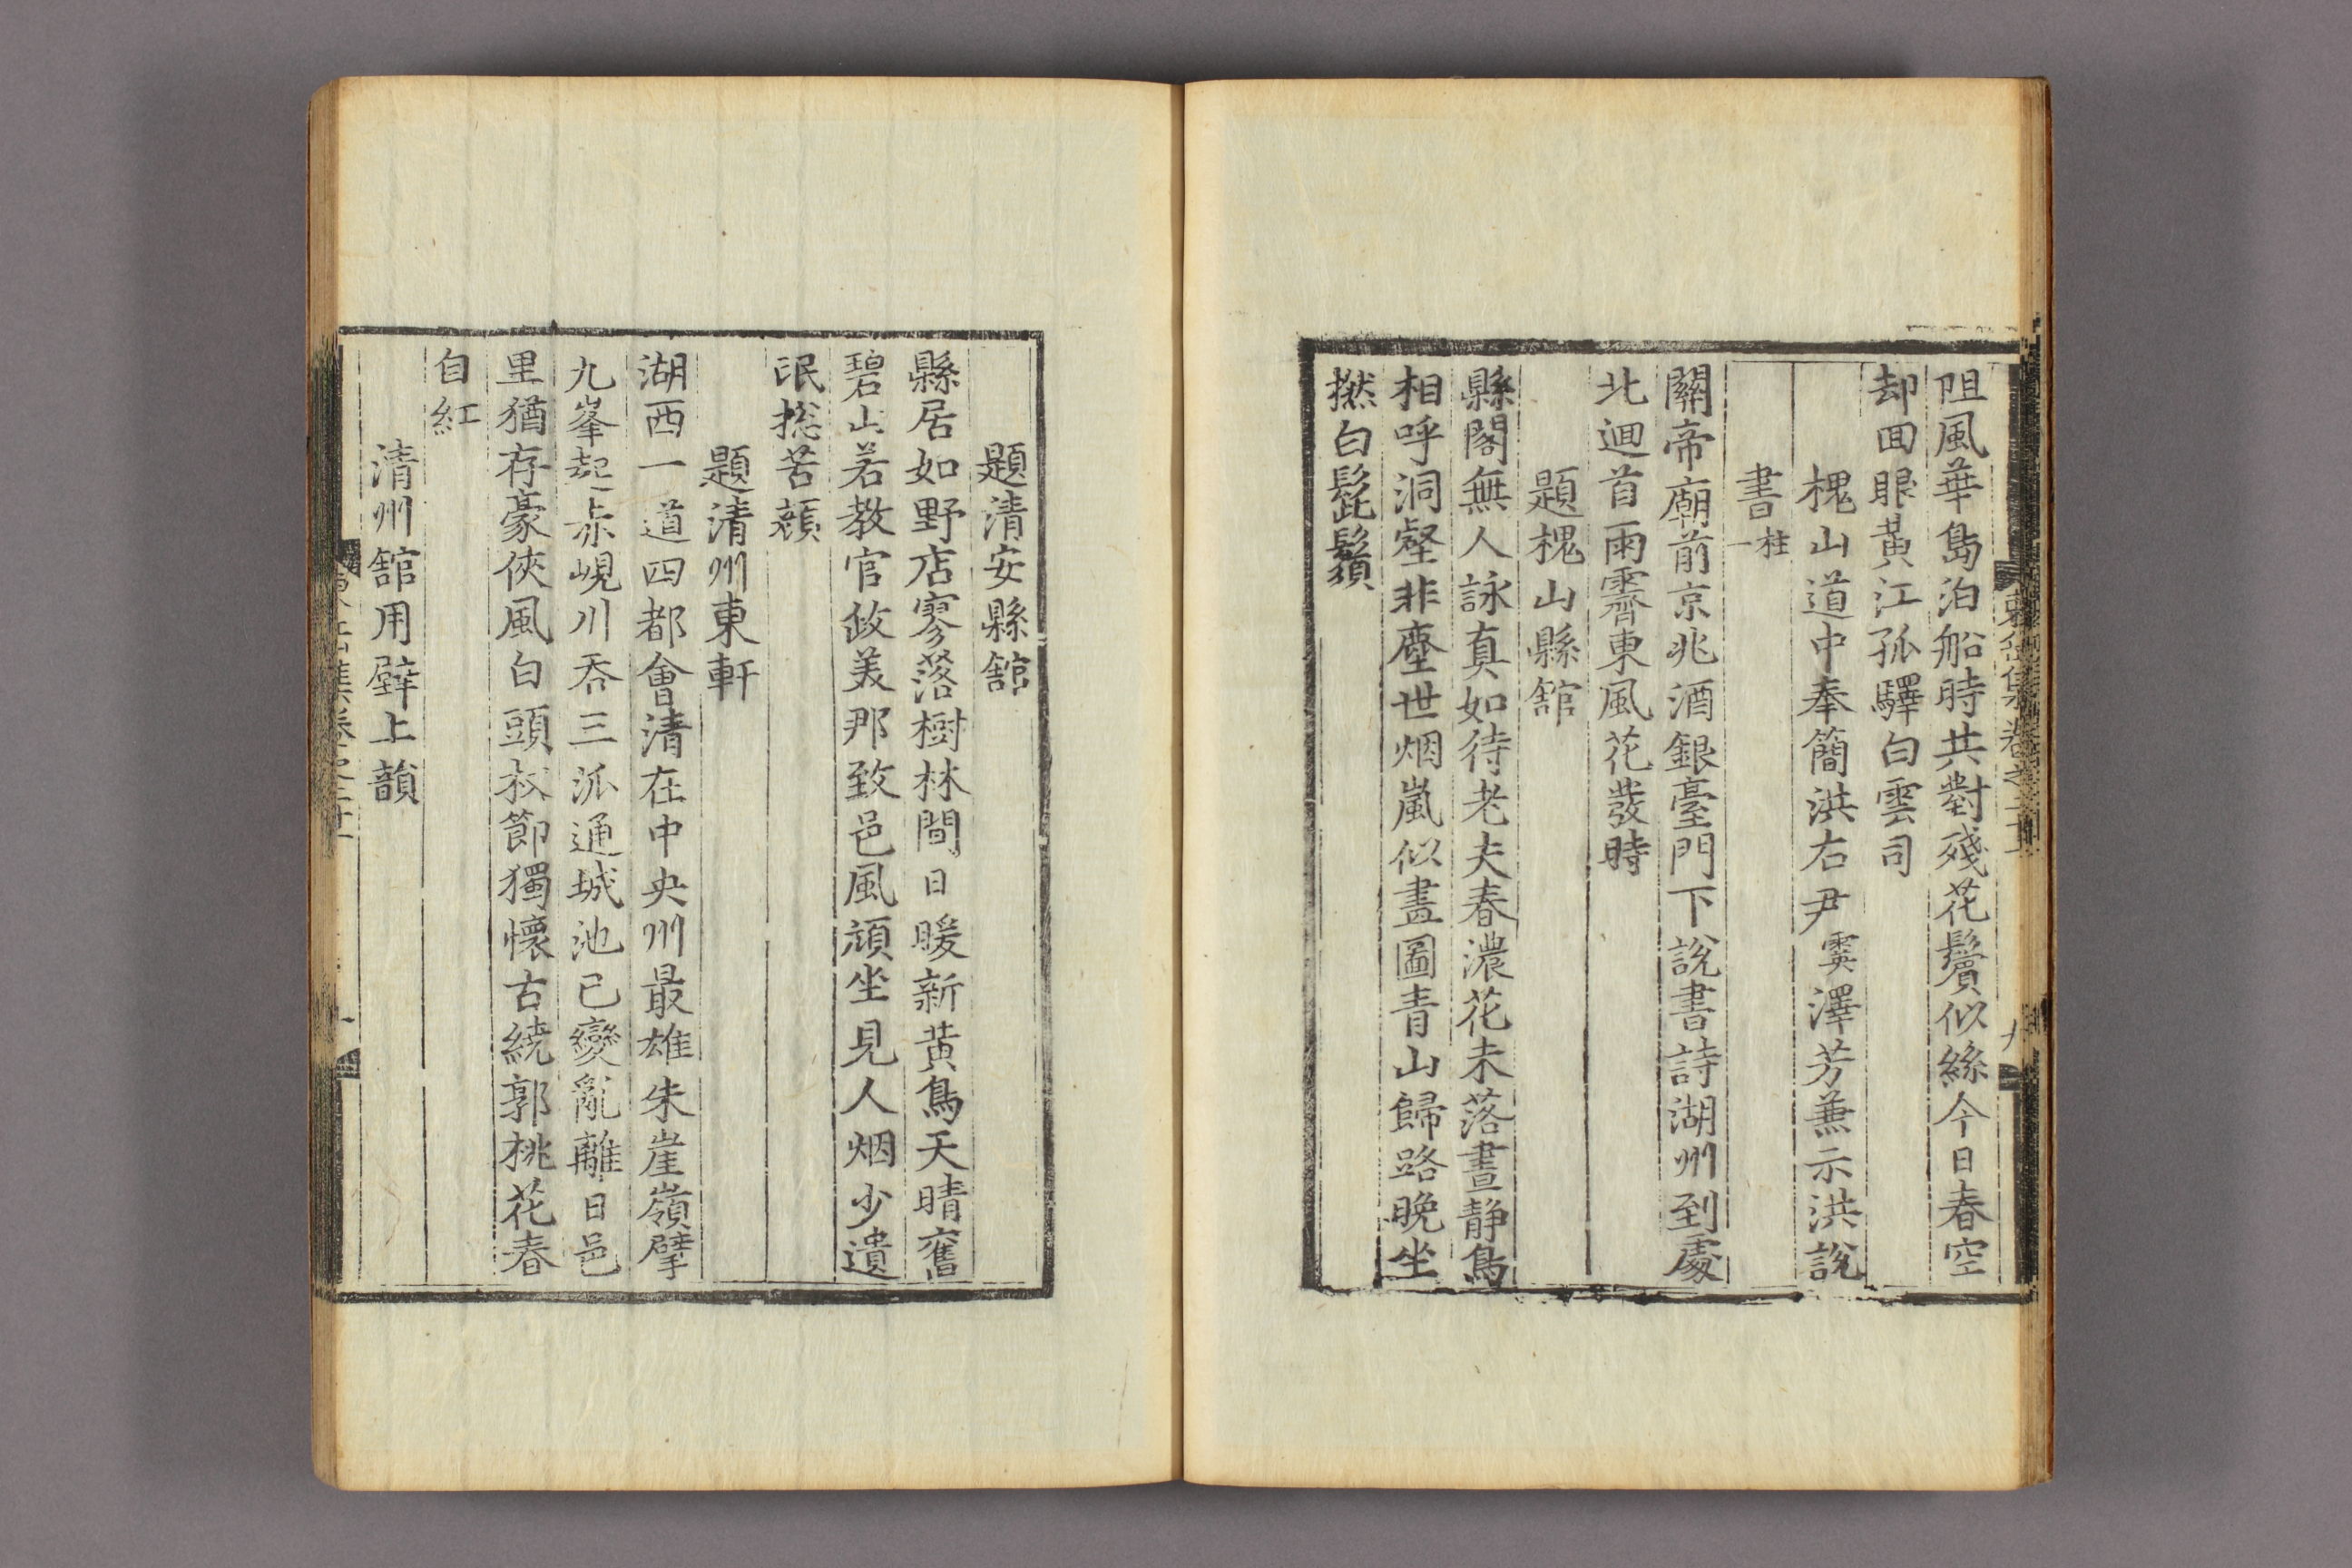 阻風華島泊船時共對殘花鬢似絲今日春空
却回眼黃江孤驛白雲司
槐山道中奉簡洪右尹霙澤芳兼示洪說
書一柱
關帝廟前京兆酒銀臺門下說書詩湖州到處
北迴首雨霽東風花發時
題槐山縣舘
縣閣無人詠真如待老夫春濃花未落晝静鳥
相呼洞壑非塵世烟嵐似畫圖青山歸路晚坐
撚白髭鬚
題清安縣舘
縣居如野店寥落樹林間日暖新黃鳥天晴舊
碧山若教官政美那致邑風頑坐見人烟少遺
氓捴苦顔
題清州東軒
湖西一道四都會清在中央州最雄朱崖嶺擘
九峯起赤峴川呑三派通城池已變亂離日邑
里猶存豪俠風白頭杖節獨懷古繞郭桃花春
自紅
清州舘用壁上韻